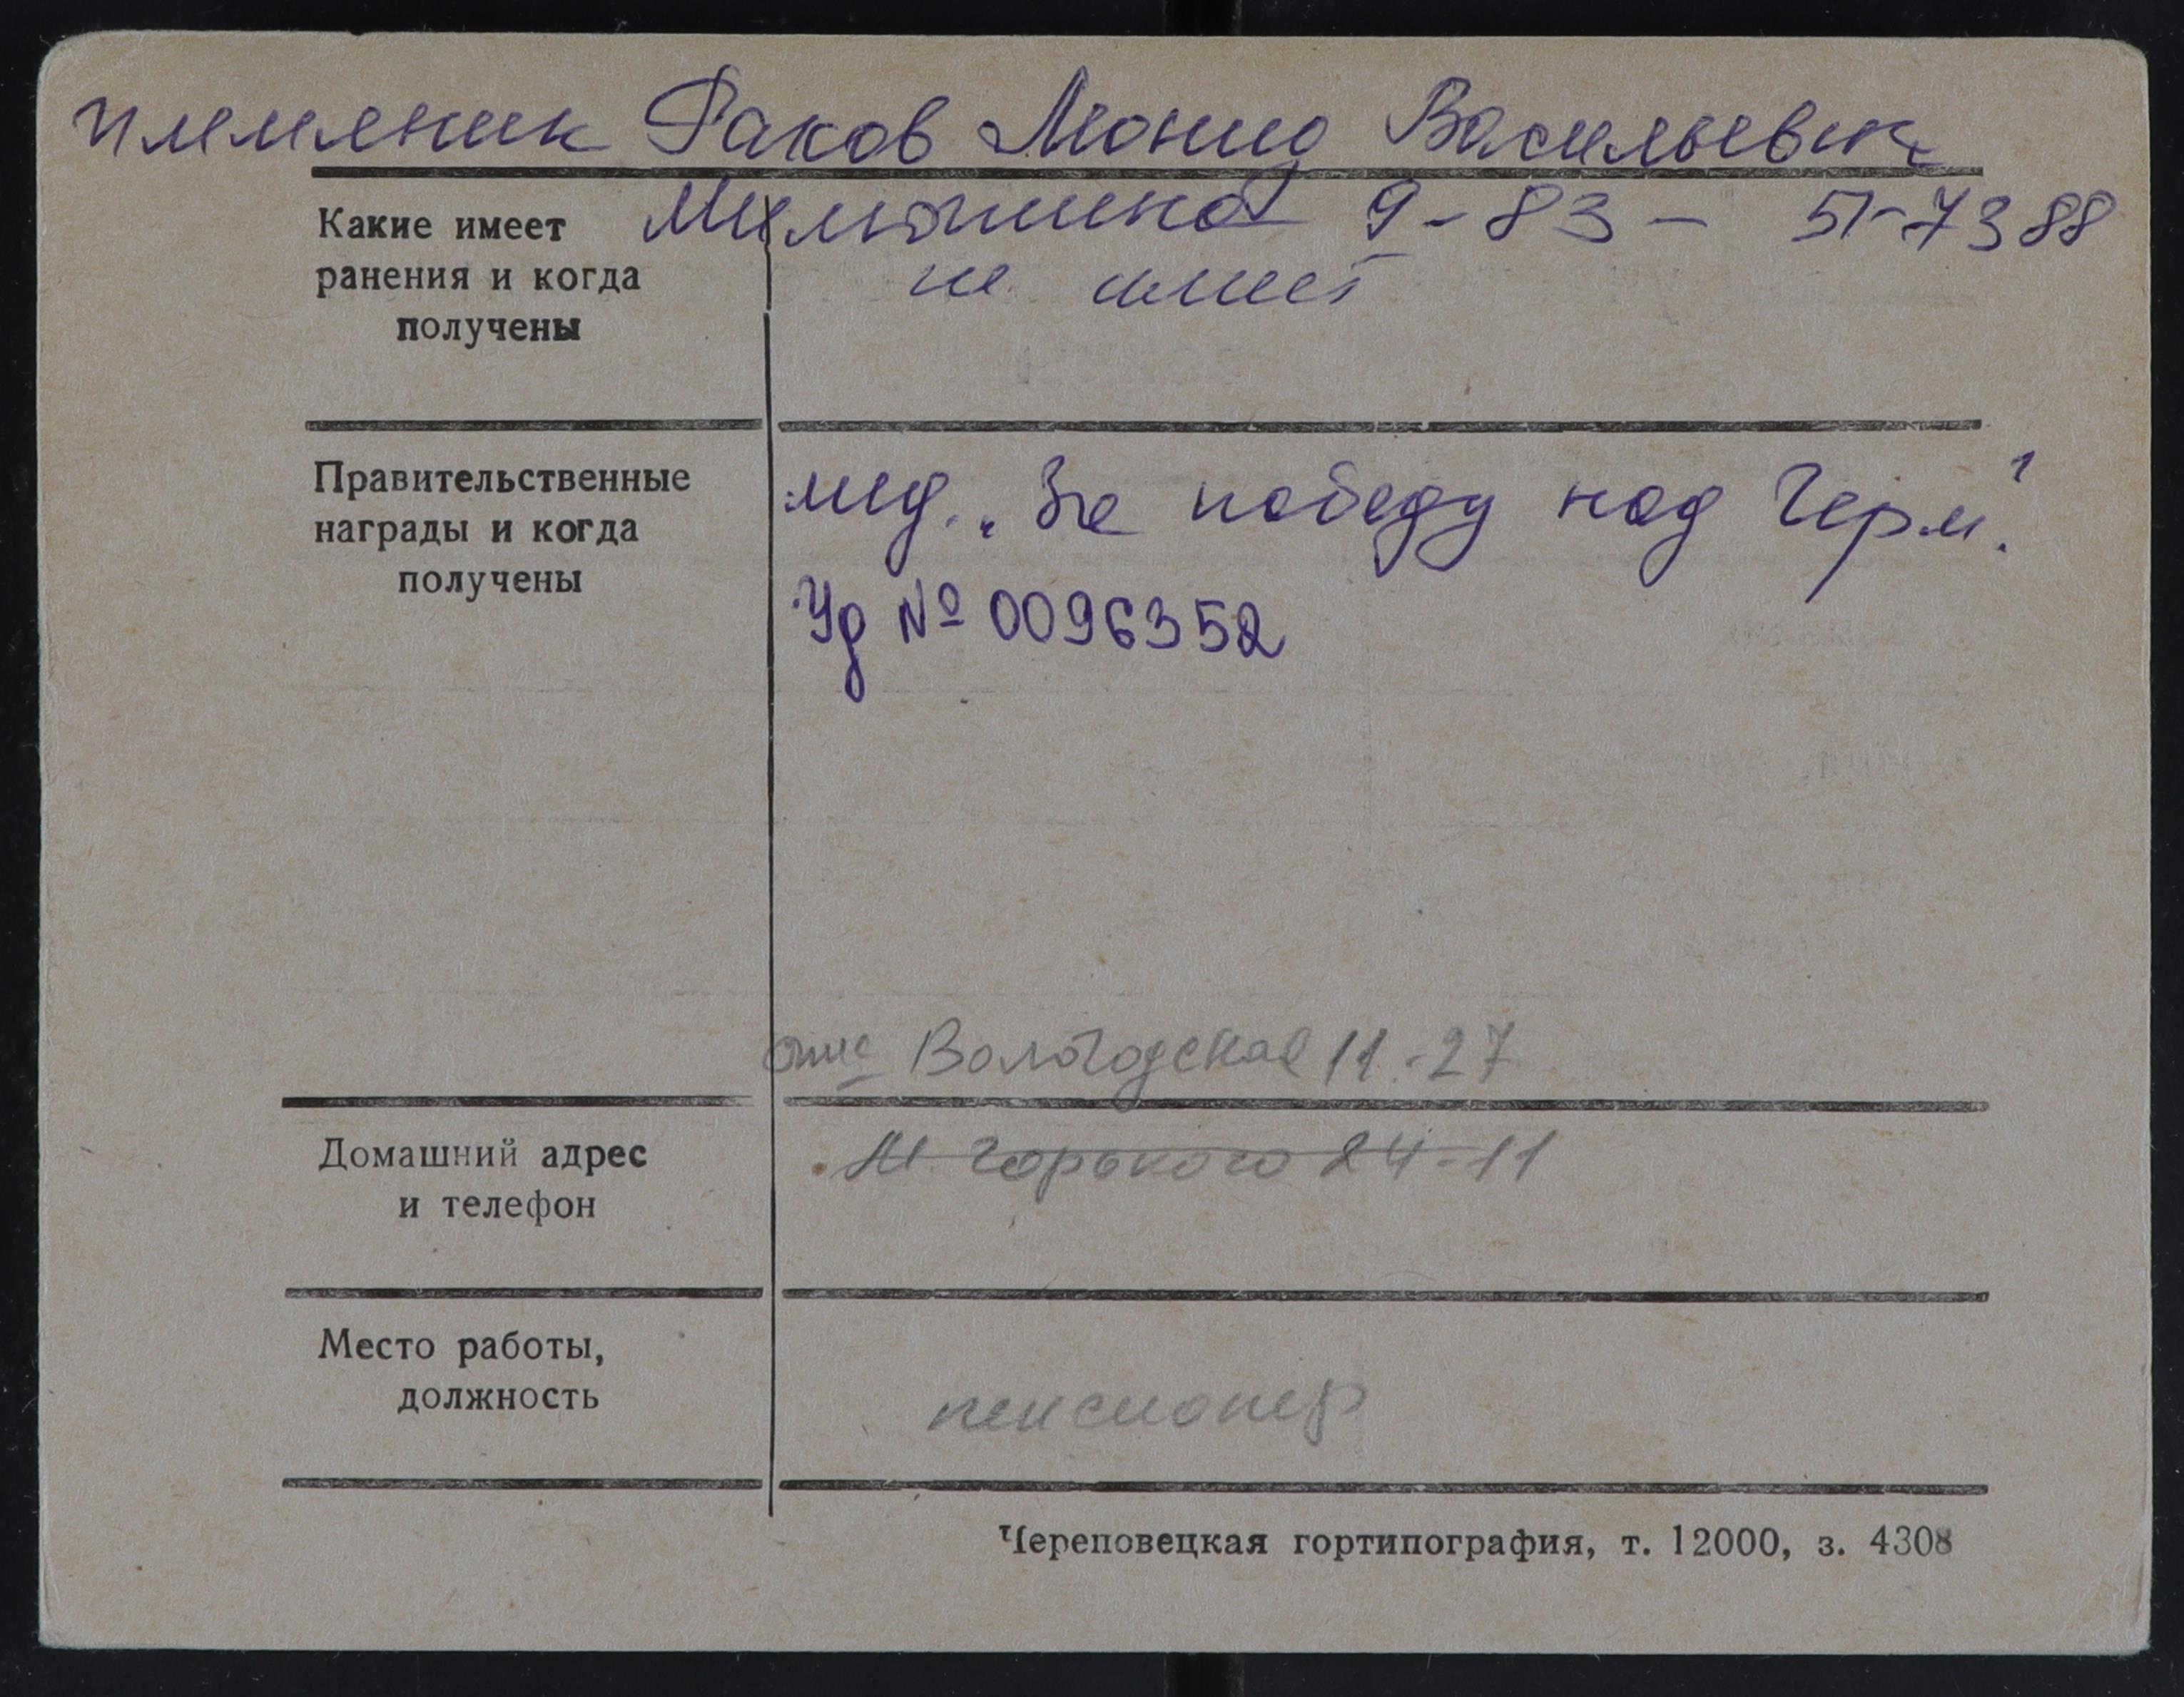 племяник Раков Леонид Васильевич
Милютина 9-83 - 51-73 88
Какие имеет
ранения и когда
получены
не имеет
Правительственные
награды и когда
получены
мед. „За победу над Герм."
Уд № 0096352
Вологодская 11-27
Домашний адрес
и телефон
М Горького 24-11
Место работы,
должность
пенсионер
Череповецкая гортипография, т. 12000, з. 4308